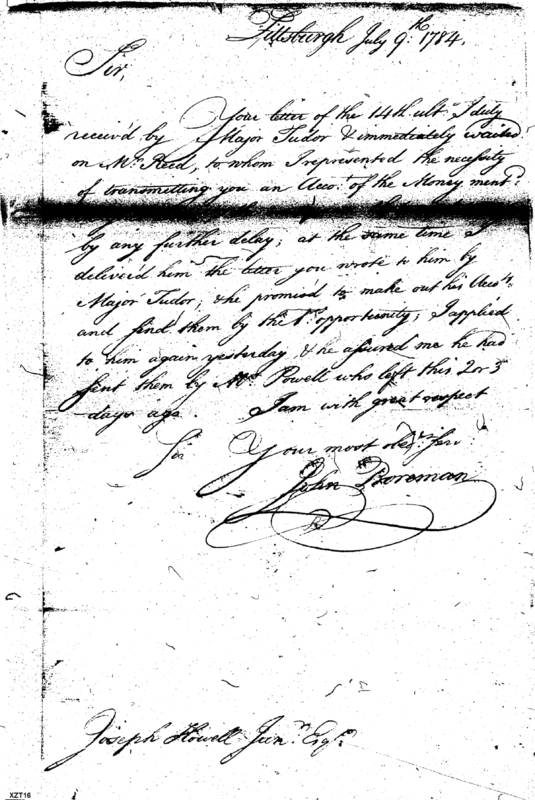 Pittsburgh July 9.th 1784.
Sir,
Your letter of the 14th ult.o I duly
receiv'd by Major Tudor & immediately waited
on Mr. Reed, to whom I represented the necessity
of transmitting you an Acco.t of the Money ment.d
by any further delay; at the same time I
deliver'd him the letter you wrote to him by
Major Tudor; & he promis'd to make out his Acco.ts
and send them by the 1st opportunity; I applied
to him again yesterday & he assured me he had
sent them by Mr. Powell who left this 2 or 3
days ago. I am with great respect
Sir Your most obed.t Serv
John Boreman
Joseph Howell Jun.r Esq.r
XZT16